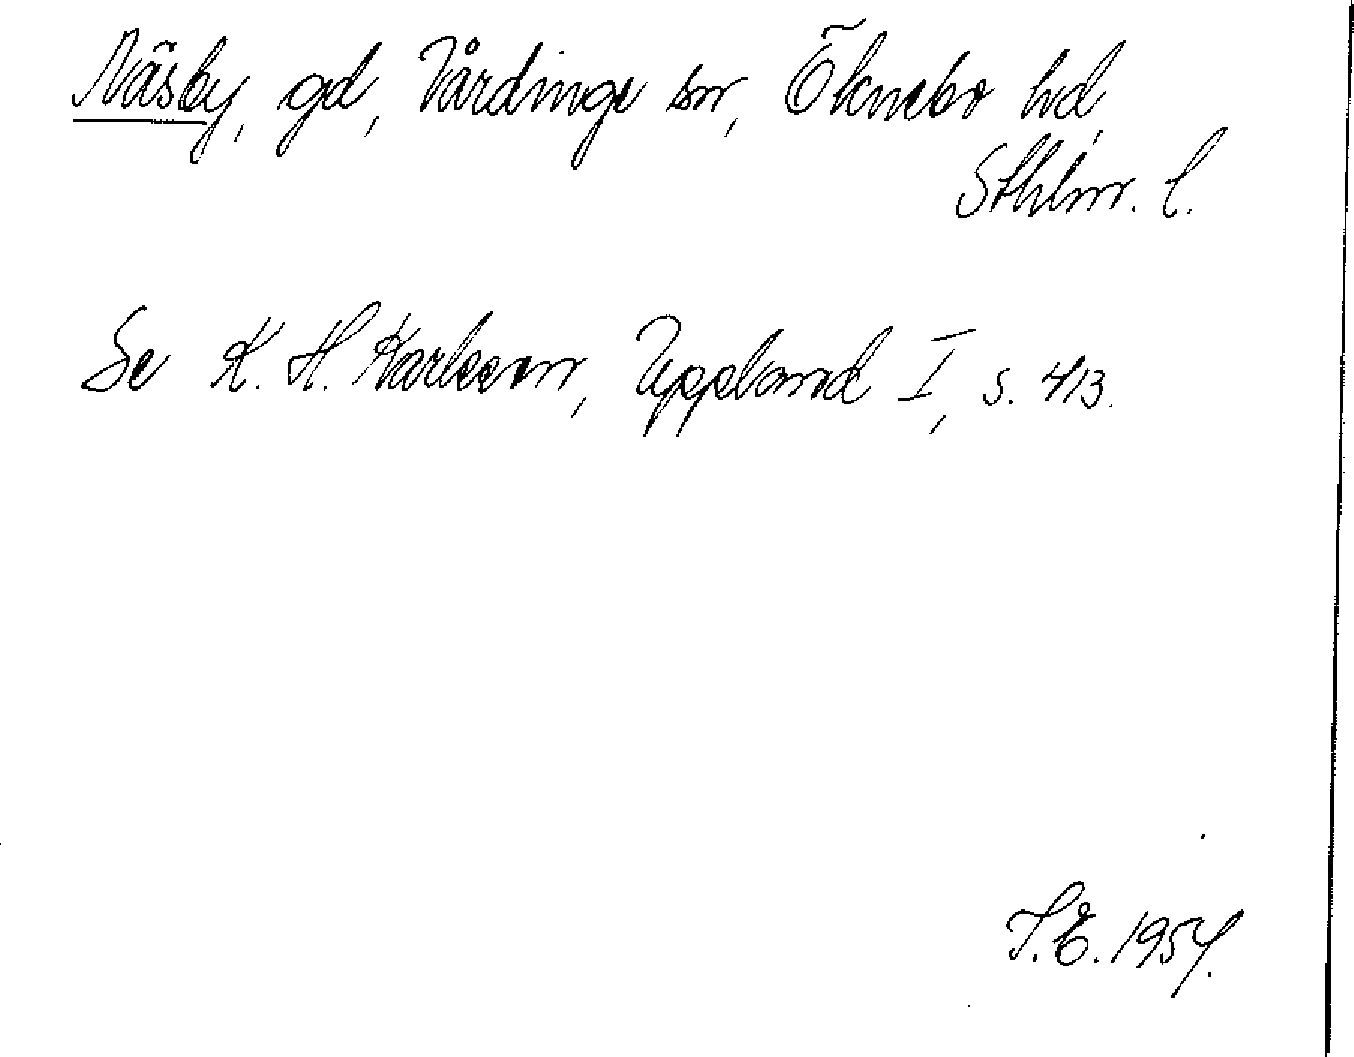 Näsby, gd, Vårdinge sn, Öknebo hd,
Sthlm. l.
Se K. H. Karlsson, Uppland I, s. 413.
T. E. 1954.